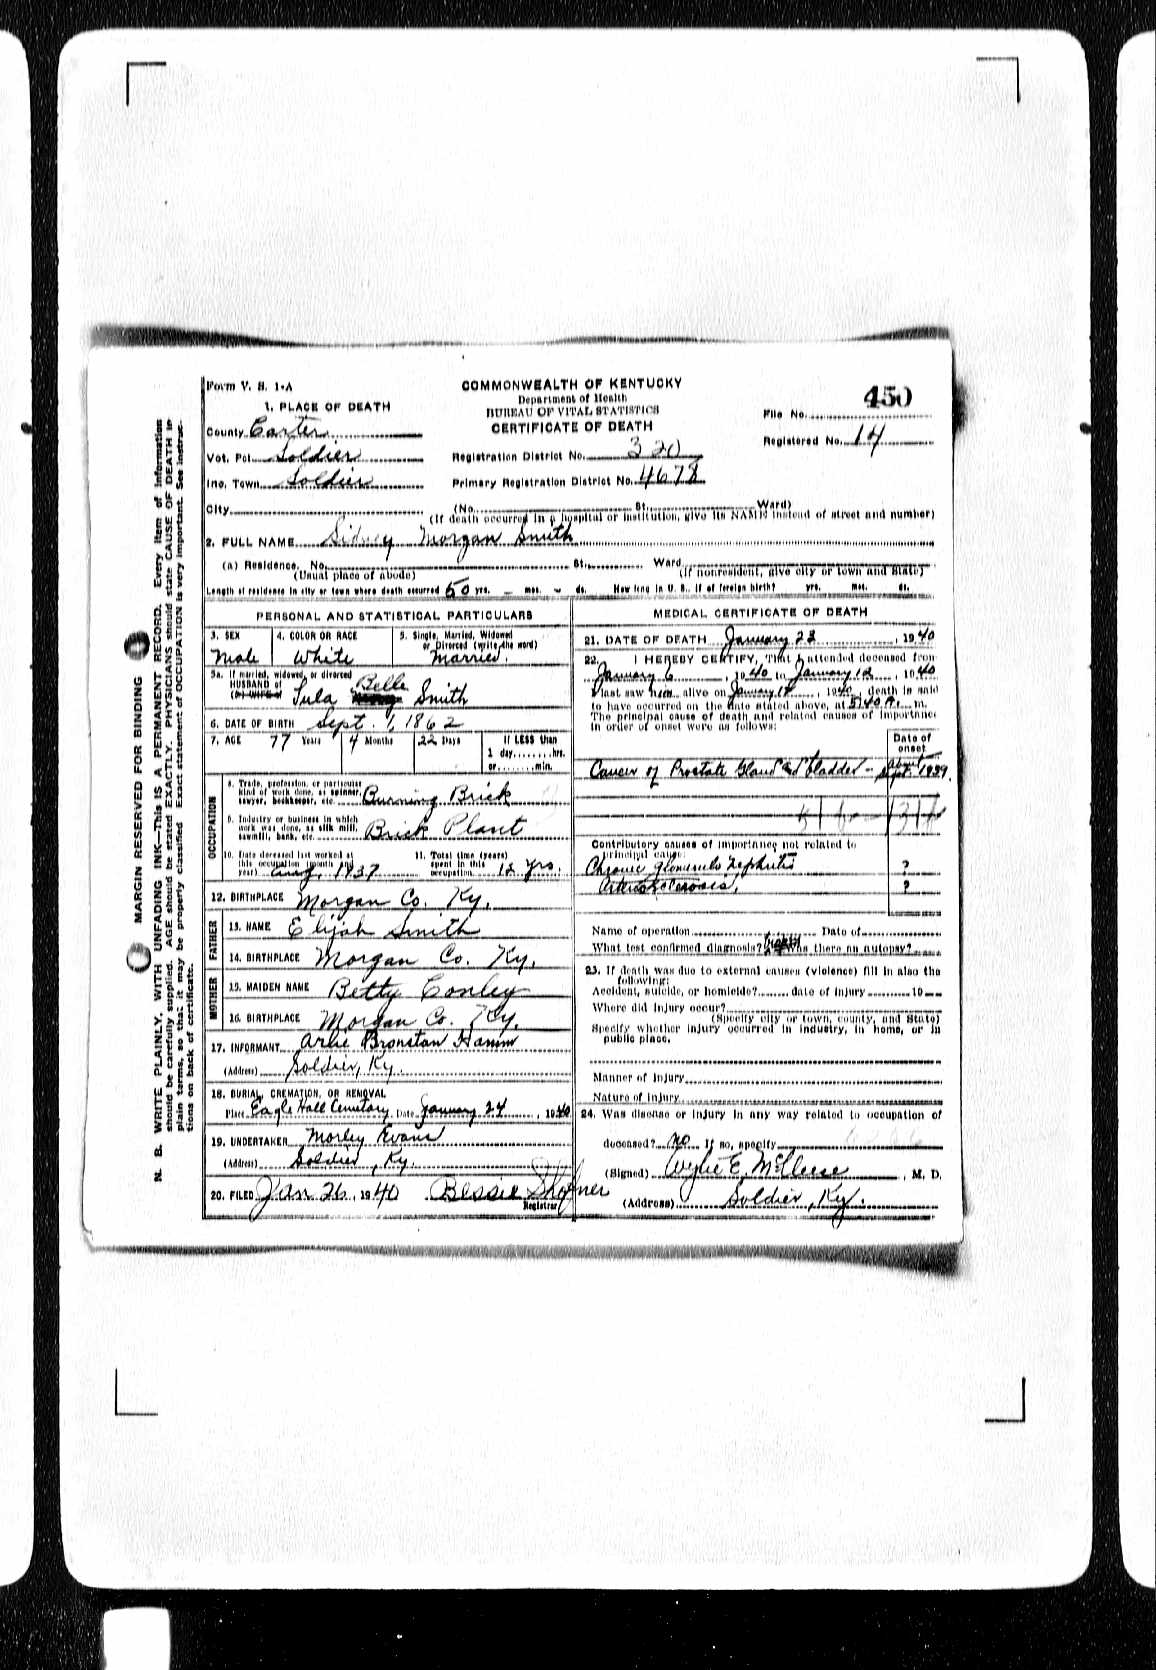 Form V. S. 1-A
COMMONWEALTH OF KENTUCKY
Department of Health
BUREAU OF VITAL STATISTICS
CERTIFICATE OF DEATH
450
File No.
Registered No. 14
1. PLACE OF DEATH
County Carter
Vot. Pct. Soldier
Inc. Town Soldier
City
Registration District No. 320
Primary Registration District No. 4678
(No. St., Ward)
(If death occurred in a hospital or institution, give its NAME instead of street and number)
2. FULL NAME Sidney Morgan Smith
(a) Residence. No. St., Ward
(Usual place of abode) (If nonresident, give city or town and State)
Length of residence in city or town where death occurred 50 yrs. – mos. – ds. How long in U. S., if of foreign birth? yrs. mos. ds.
PERSONAL AND STATISTICAL PARTICULARS
3. SEX Male
4. COLOR OR RACE White
5. Single, Married, Widowed or Divorced (write the word) Married.
5a. If married, widowed, or divorced
HUSBAND of
(or) WIFE of
Lula Belle Smith
6. DATE OF BIRTH Sept. 1, 1862
7. AGE 77 Years 4 Months 22 Days If LESS than 1 day, hrs. or min.
OCCUPATION
8. Trade, profession, or particular kind of work done, as spinner, sawyer, bookkeeper, etc. Burning Brick
9. Industry or business in which work was done, as silk mill, sawmill, bank, etc. Brick Plant
10. Date deceased last worked at this occupation (month and year) Aug. 1937
11. Total time (years) spent in this occupation 12 yrs.
12. BIRTHPLACE Morgan Co. Ky.
FATHER
13. NAME Elijah Smith
14. BIRTHPLACE Morgan Co. Ky.
MOTHER
15. MAIDEN NAME Betty Conley
16. BIRTHPLACE Morgan Co. Ky.
17. INFORMANT Arlie Bronston Hamm
(Address) Soldier, Ky.
18. BURIAL, CREMATION, OR REMOVAL
Place Eagle Hall Cemetary Date January 24, 1940
19. UNDERTAKER Morley Evans
(Address) Soldier, Ky.
20. FILED Jan 26, 1940 Bessie
Registrar
MEDICAL CERTIFICATE OF DEATH
21. DATE OF DEATH January 23, 1940
22. I HEREBY CERTIFY, That I attended deceased from
January 6, 1940 to January 12, 1940
I last saw him alive on January 12, 1940, death is said
to have occurred on the date stated above, at 5:40 A. m.
The principal cause of death and related causes of importance
in order of onset were as follows:
Date of onset
Cancer of Prostate Gland and bladder – about Sept. 1939
Contributory causes of importance not related to
principal cause:
Chronic Glomerulo Nephritis ?
Arteriosclerosis, ?
Name of operation Date of
What test confirmed diagnosis? Was there an autopsy?
23. If death was due to external causes (violence) fill in also the
following:
Accident, suicide, or homicide? date of injury 19
Where did injury occur?
(Specify city or town, county, and State)
Specify whether injury occurred in industry, in home, or in
public place.
Manner of Injury
Nature of Injury
24. Was disease or injury in any way related to occupation of
deceased? no If so, specify
(Signed) E. McCleese, M. D.
(Address) Soldier, Ky.
MARGIN RESERVED FOR BINDING
N. B. WRITE PLAINLY, WITH UNFADING INK—This IS A PERMANENT RECORD. Every item of information
should be carefully supplied. AGE should be stated EXACTLY. PHYSICIANS should state CAUSE OF DEATH in
plain terms, so that it may be properly classified. Exact statement of OCCUPATION is very important. See instruc-
tions on back of certificate.